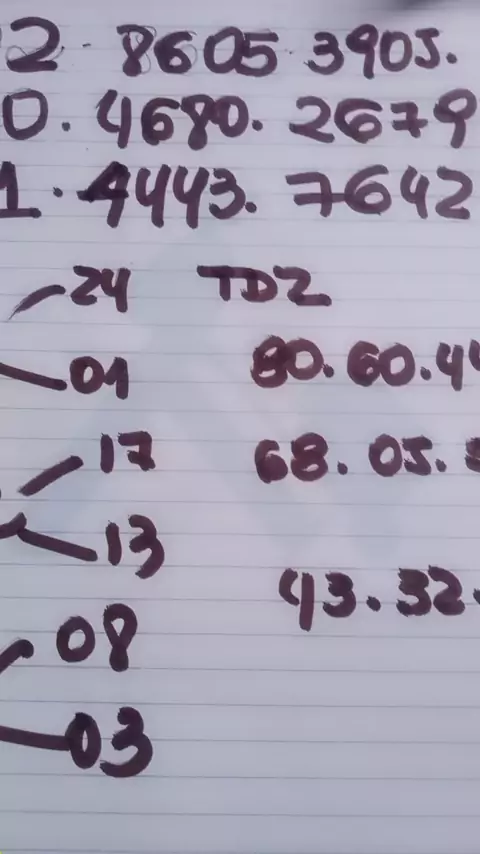 2. 8605 3905.
0. 4680. 2679
1. 4443. 7642
24 TDZ
01 80.60.44
17 68.05.
13
43.32.
08
03